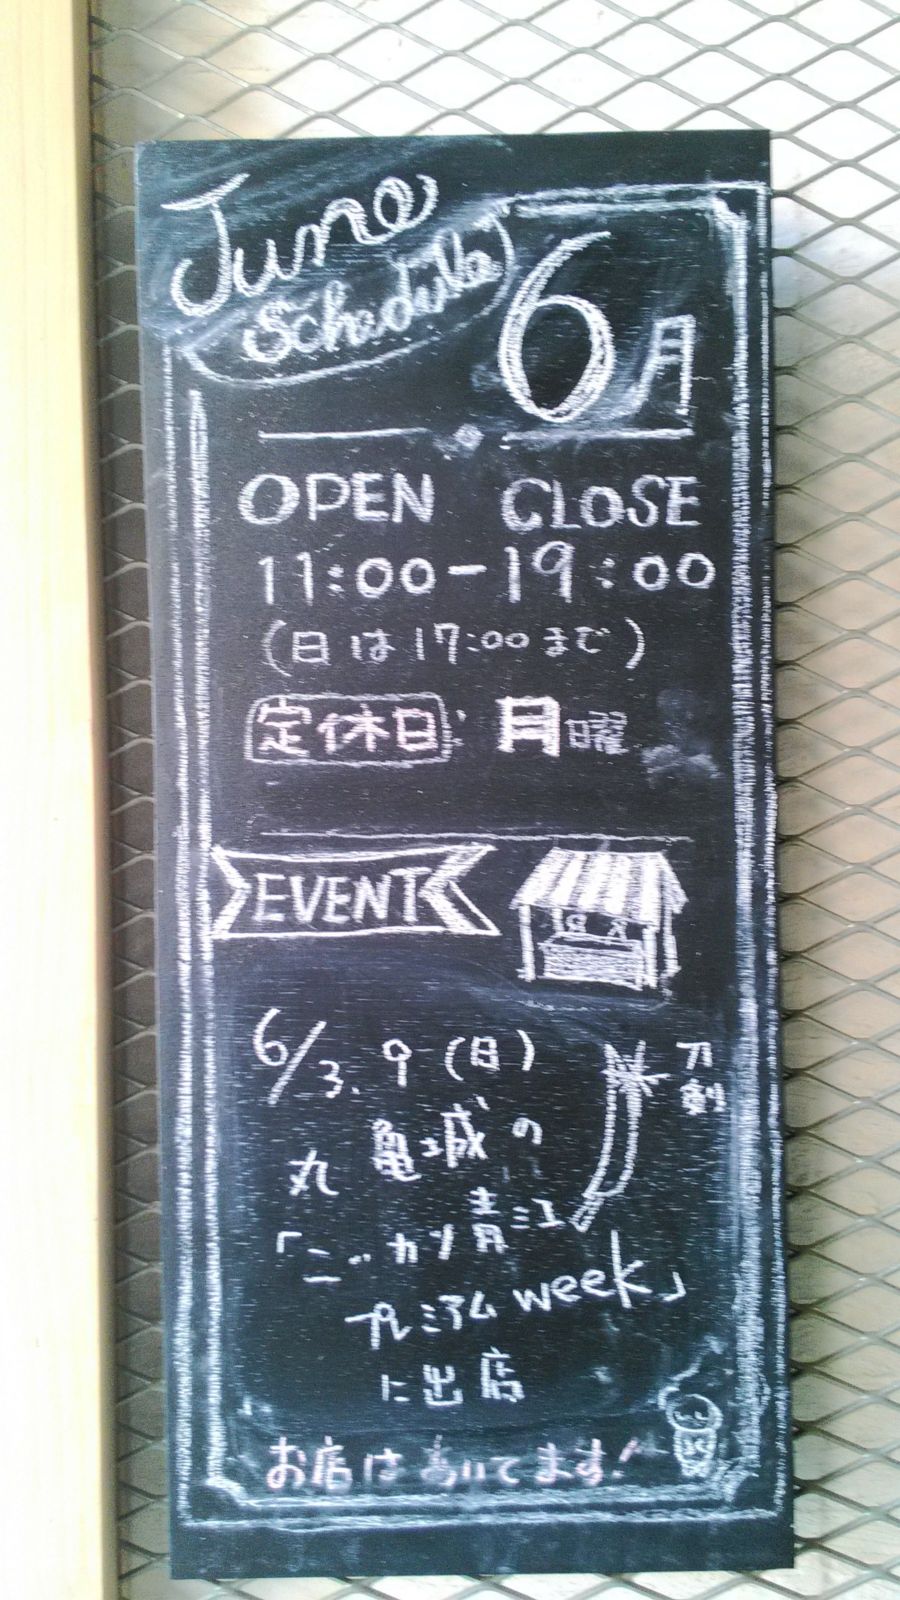 June
Schedule
6月
OPEN CLOSE
11:00-19:00
(日は17:00まで)
定休日: 月曜
EVENT
6/3.9(日)
刀剣
丸亀城の
「ニッカリ青江
プレミアムweek」
に出店
お店はあいてます!